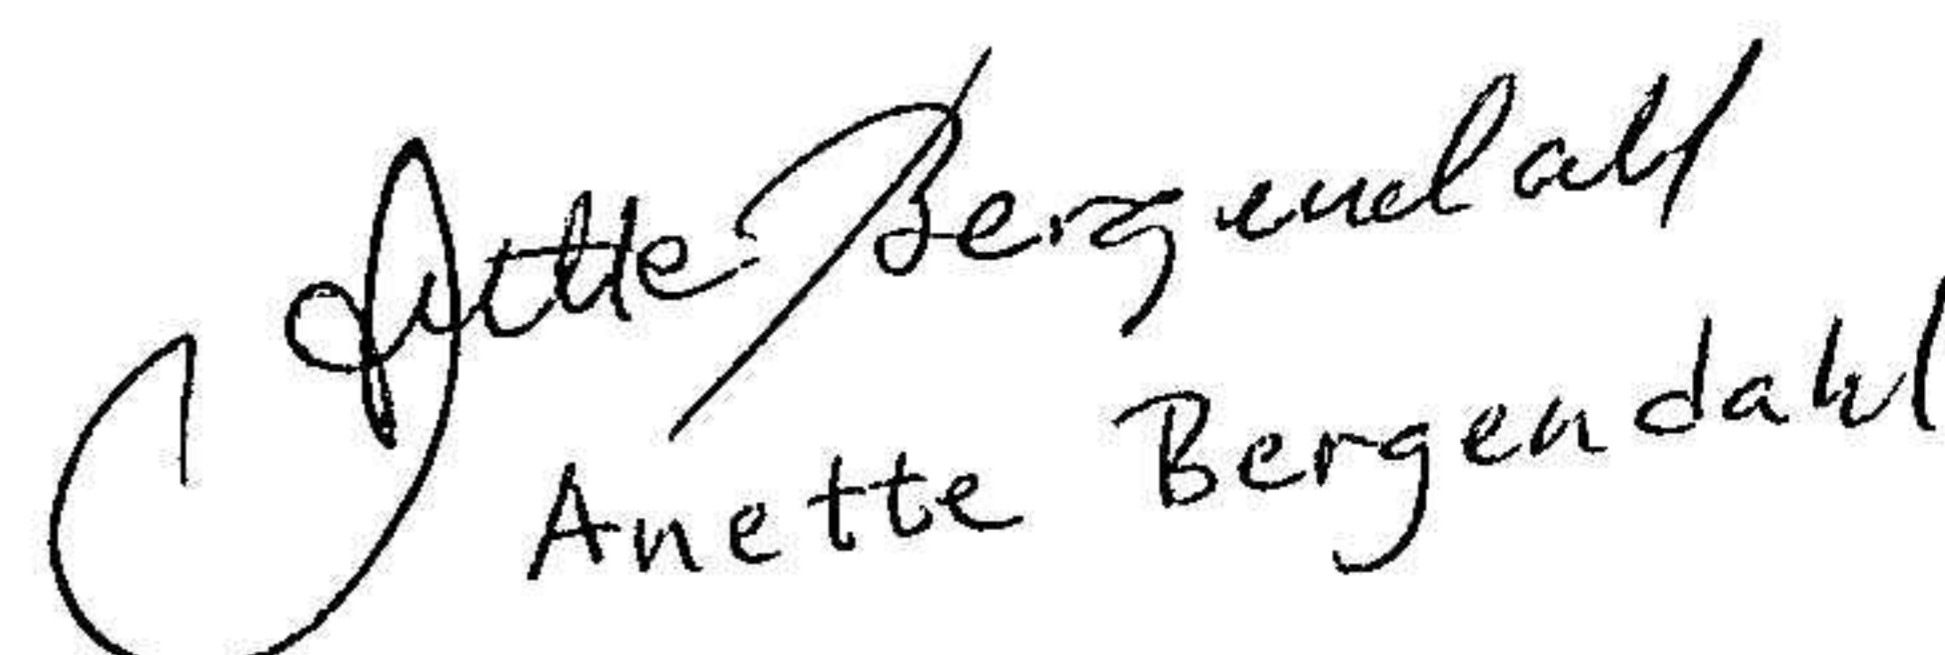 Anette Bergendahl
Anette Bergendahl